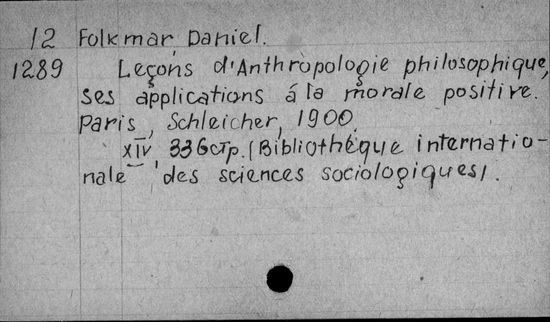 12 Folkmar, Daniel.
1289 Leçons d'Anthropologie philosophique,
ses applications á la morale positive.
Paris, Schleicher, 1900.
XIV, 336 стр. (Bibliothéque internatio-
nale des sciences sociologiques).